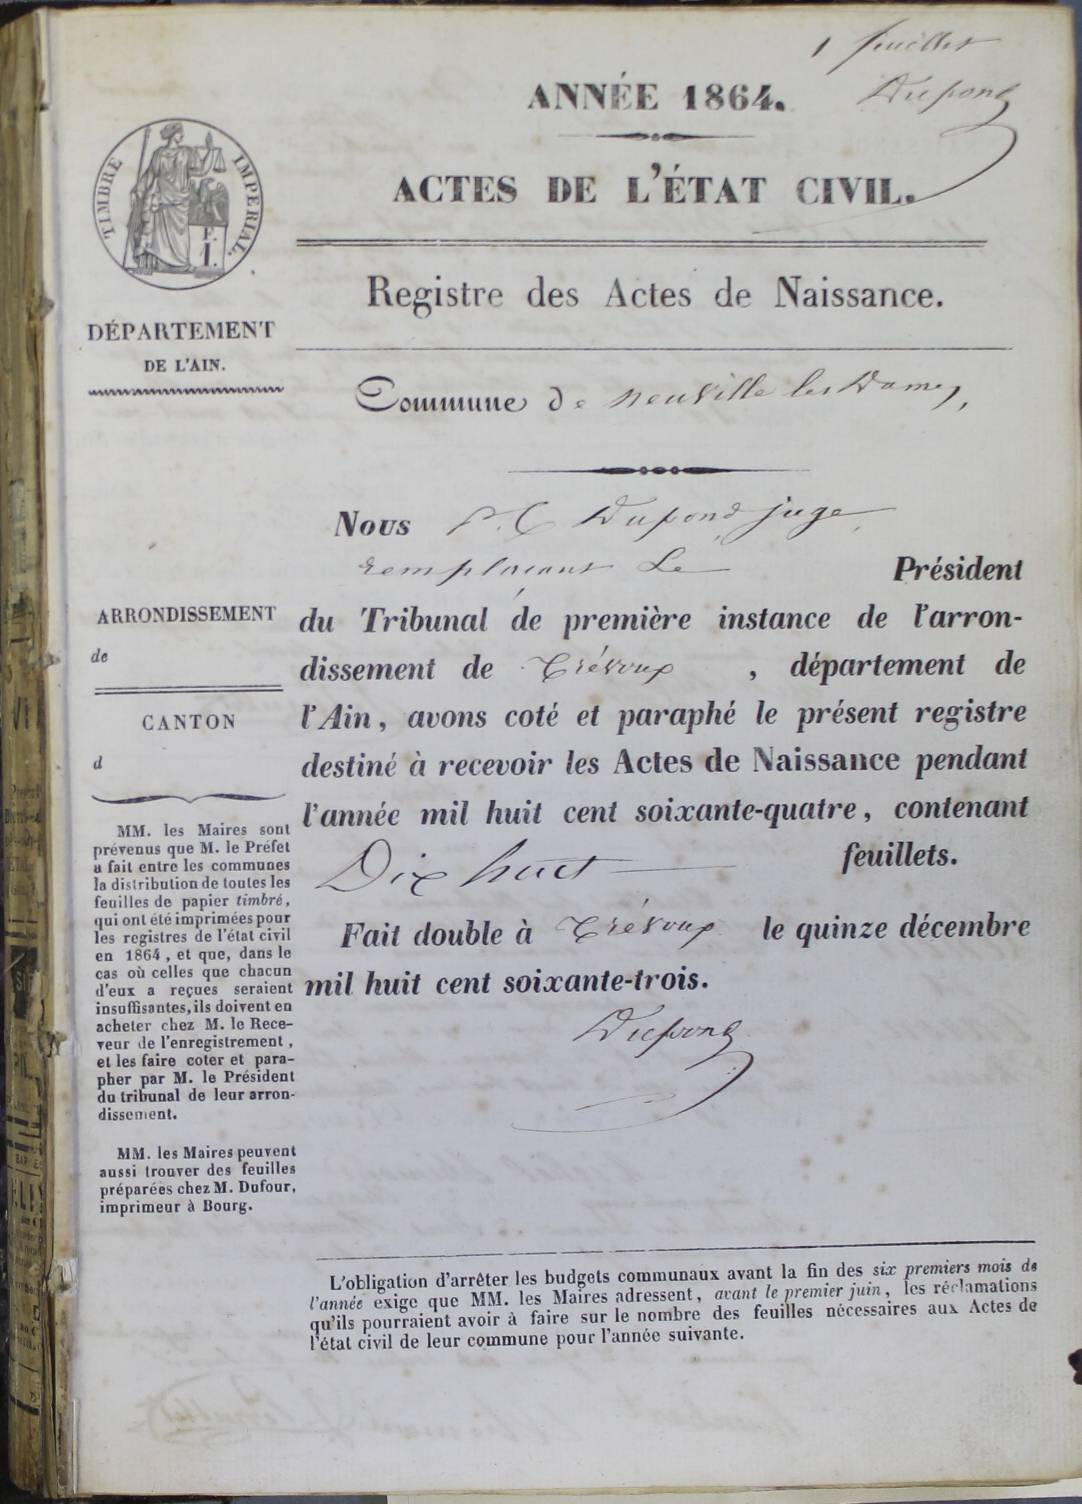 1 feuillet
Dupond
ANNÉE 1864.
ACTES DE L'ÉTAT CIVIL.
TIMBRE IMPERIAL.
F.
1.
DÉPARTEMENT
DE L'AIN.
Registre des Actes de Naissance.
Commune de neuville les Dames,
Nous P. C Dupond juge
remplacant Le Président
du Tribunal de première instance de l'arron-
dissement de Trévoux, département de
l'Ain, avons coté et paraphé le présent registre
destiné à recevoir les Actes de Naissance pendant
l'année mil huit cent soixante-quatre, contenant
Dix huit feuillets.
Fait double à Trévoux le quinze décembre
mil huit cent soixante-trois.
Dupond
ARRONDISSEMENT
de
CANTON
d
MM. les Maires sont
prévenus que M. le Préfet
a fait entre les communes
la distribution de toutes les
feuilles de papier timbré,
qui ont été imprimées pour
les registres de l'état civil
en 1864, et que, dans le
cas où celles que chacun
d'eux a reçues seraient
insuffisantes, ils doivent en
acheter chez M. le Rece-
veur de l'enregistrement,
et les faire coter et para-
pher par M. le Président
du tribunal de leur arron-
dissement.
MM. les Maires peuvent
aussi trouver des feuilles
préparées chez M. Dufour,
imprimeur à Bourg.
L'obligation d'arrêter les budgets communaux avant la fin des six premiers mois de
l'année exige que MM. les Maires adressent, avant le premier juin, les réclamations
qu'ils pourraient avoir à faire sur le nombre des feuilles nécessaires aux Actes de
l'état civil de leur commune pour l'année suivante.